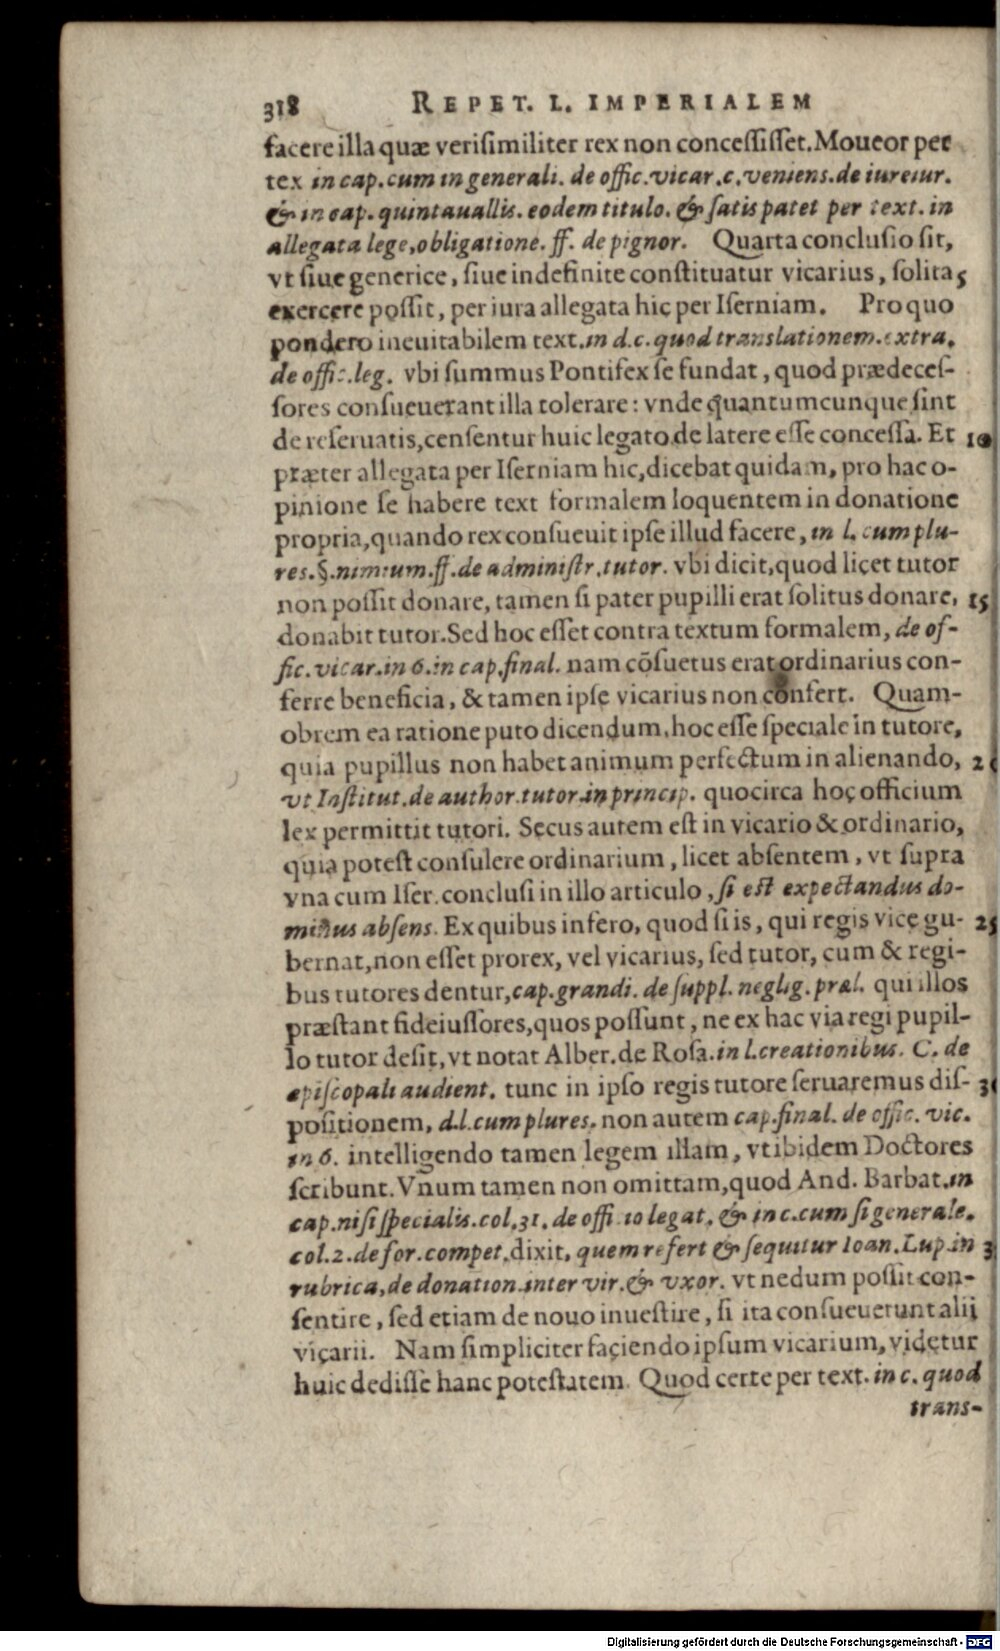 318 REPET. L. IMPERIALEM
facere illa quæ verisimiliter rex non concessisset. Moueor per
tex in cap. cum in generali. de offic. vicar. c. veniens. de iureiur.
& in cap. quintauallis. eodem titulo. & satis patet per text. in
allegata lege, obligatione. ff. de pignor. Quarta conclusio sit,
vt siue generice, siue indefinite constituatur vicarius, solita 5
exercere possit, per iura allegata hic per Iserniam. Pro quo
pondero ineuitabilem text. in d. c. quod translationem. extra.
de offic. leg. vbi summus Pontifex se fundat, quod prædeces-
sores consueuerant illa tolerare: vnde quantumcunque sint
de reseruatis, censentur huic legato de latere esse concessa. Et 10
præter allegata per Iserniam hic, dicebat quidam, pro hac o-
pinione se habere text formalem loquentem in donatione
propria, quando rex consueuit ipse illud facere, in l. cum plu-
res. §. nimium. ff. de administr. tutor. vbi dicit, quod licet tutor
non possit donare, tamen si pater pupilli erat solitus donare, 15
donabit tutor. Sed hoc esset contra textum formalem, de of-
fic. vicar. in 6. in cap. final. nam cõsuetus erat ordinarius con-
ferre beneficia, & tamen ipse vicarius non confert. Quam-
obrem ea ratione puto dicendum, hoc esse speciale in tutore,
quia pupillus non habet animum perfectum in alienando, 2
vt Institut. de author. tutor. in princip. quocirca hoc officium
lex permittit tutori. Secus autem est in vicario & ordinario,
quia potest consulere ordinarium, licet absentem, vt supra
vna cum Iser. conclusi in illo articulo, si est expectandus do-
minus absens. Ex quibus infero, quod si is, qui regis vice gu- 25
bernat, non esset prorex, vel vicarius, sed tutor, cum & regi-
bus tutores dentur, cap. grandi. de suppl. neglig. præl. qui illos
præstant fideiussores, quos possunt, ne ex hac via regi pupil-
lo tutor desit, vt notat Alber. de Rosa. in l. creationibus. C. de
episcopali audient. tunc in ipso regis tutore seruaremus dis- 3
positionem, d. l. cum plures. non autem cap. final. de offic. vic.
in 6. intelligendo tamen legem illam, vt ibidem Doctores
scribunt. Vnum tamen non omittam, quod And. Barbat. in
cap. nisi specialis. col. 31. de offi io legat. & in c. cum si generale.
col. 2. de for. compet. dixit, quem refert & sequitur Ioan. Lup. in 3
rubrica, de donation. inter vir. & vxor. vt nedum possit con-
sentire, sed etiam de nouo inuestire, si ita consueuerunt alii
vicarii. Nam simpliciter faciendo ipsum vicarium, videtur
huic dedisse hanc potestatem. Quod certe per text. in c. quod
trans-
Digitalisierung gefördert durch die Deutsche Forschungsgemeinschaft - DFG